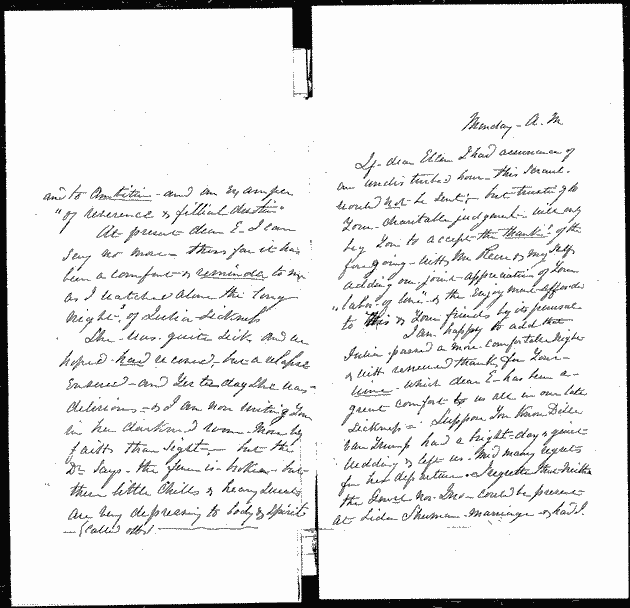 and to Ambition - and an example
"of reverence & fillial devotion"
At present dear E - I can
say no more - thus far it has
been a comfort & reminder to me
as I watched alone the long
night, of Julia's sickness
She was quite sick and we
hoped had recovered - but a relapse
Ensued - and Yesterday she was
delirious - & I am now writing You
in her darkened room - more by
faith than sight - but the
Dr. says - the fever is broken - but
these little Chills & heavy sweats
are very depressing to body & spirit
- (Called off)
Monday - A. M
If dear Ellen I had assurance of
an undisturbed hour - this scrawl
would not be sent; but trusting to
Your charitable judgment - will only
beg You to accept the thanks of the
foregoing - with Mr & myself
adding our joint appreciation of Your
"labor of love" & the enjoyment affords
to this & Your friends by its perusal
I am happy to add that
Julia passed a more comfortable night
& with renewed thanks for Your
time - which dear E - has been a
great comfort to us all in our late
sickness = Suppose You know Delle
Van Trump had a bright - day & quiet
wedding & left us - mid many regrets
for her departure. I regretted that neither
the Gover nor - could be present
at Sherman marriage - & had I